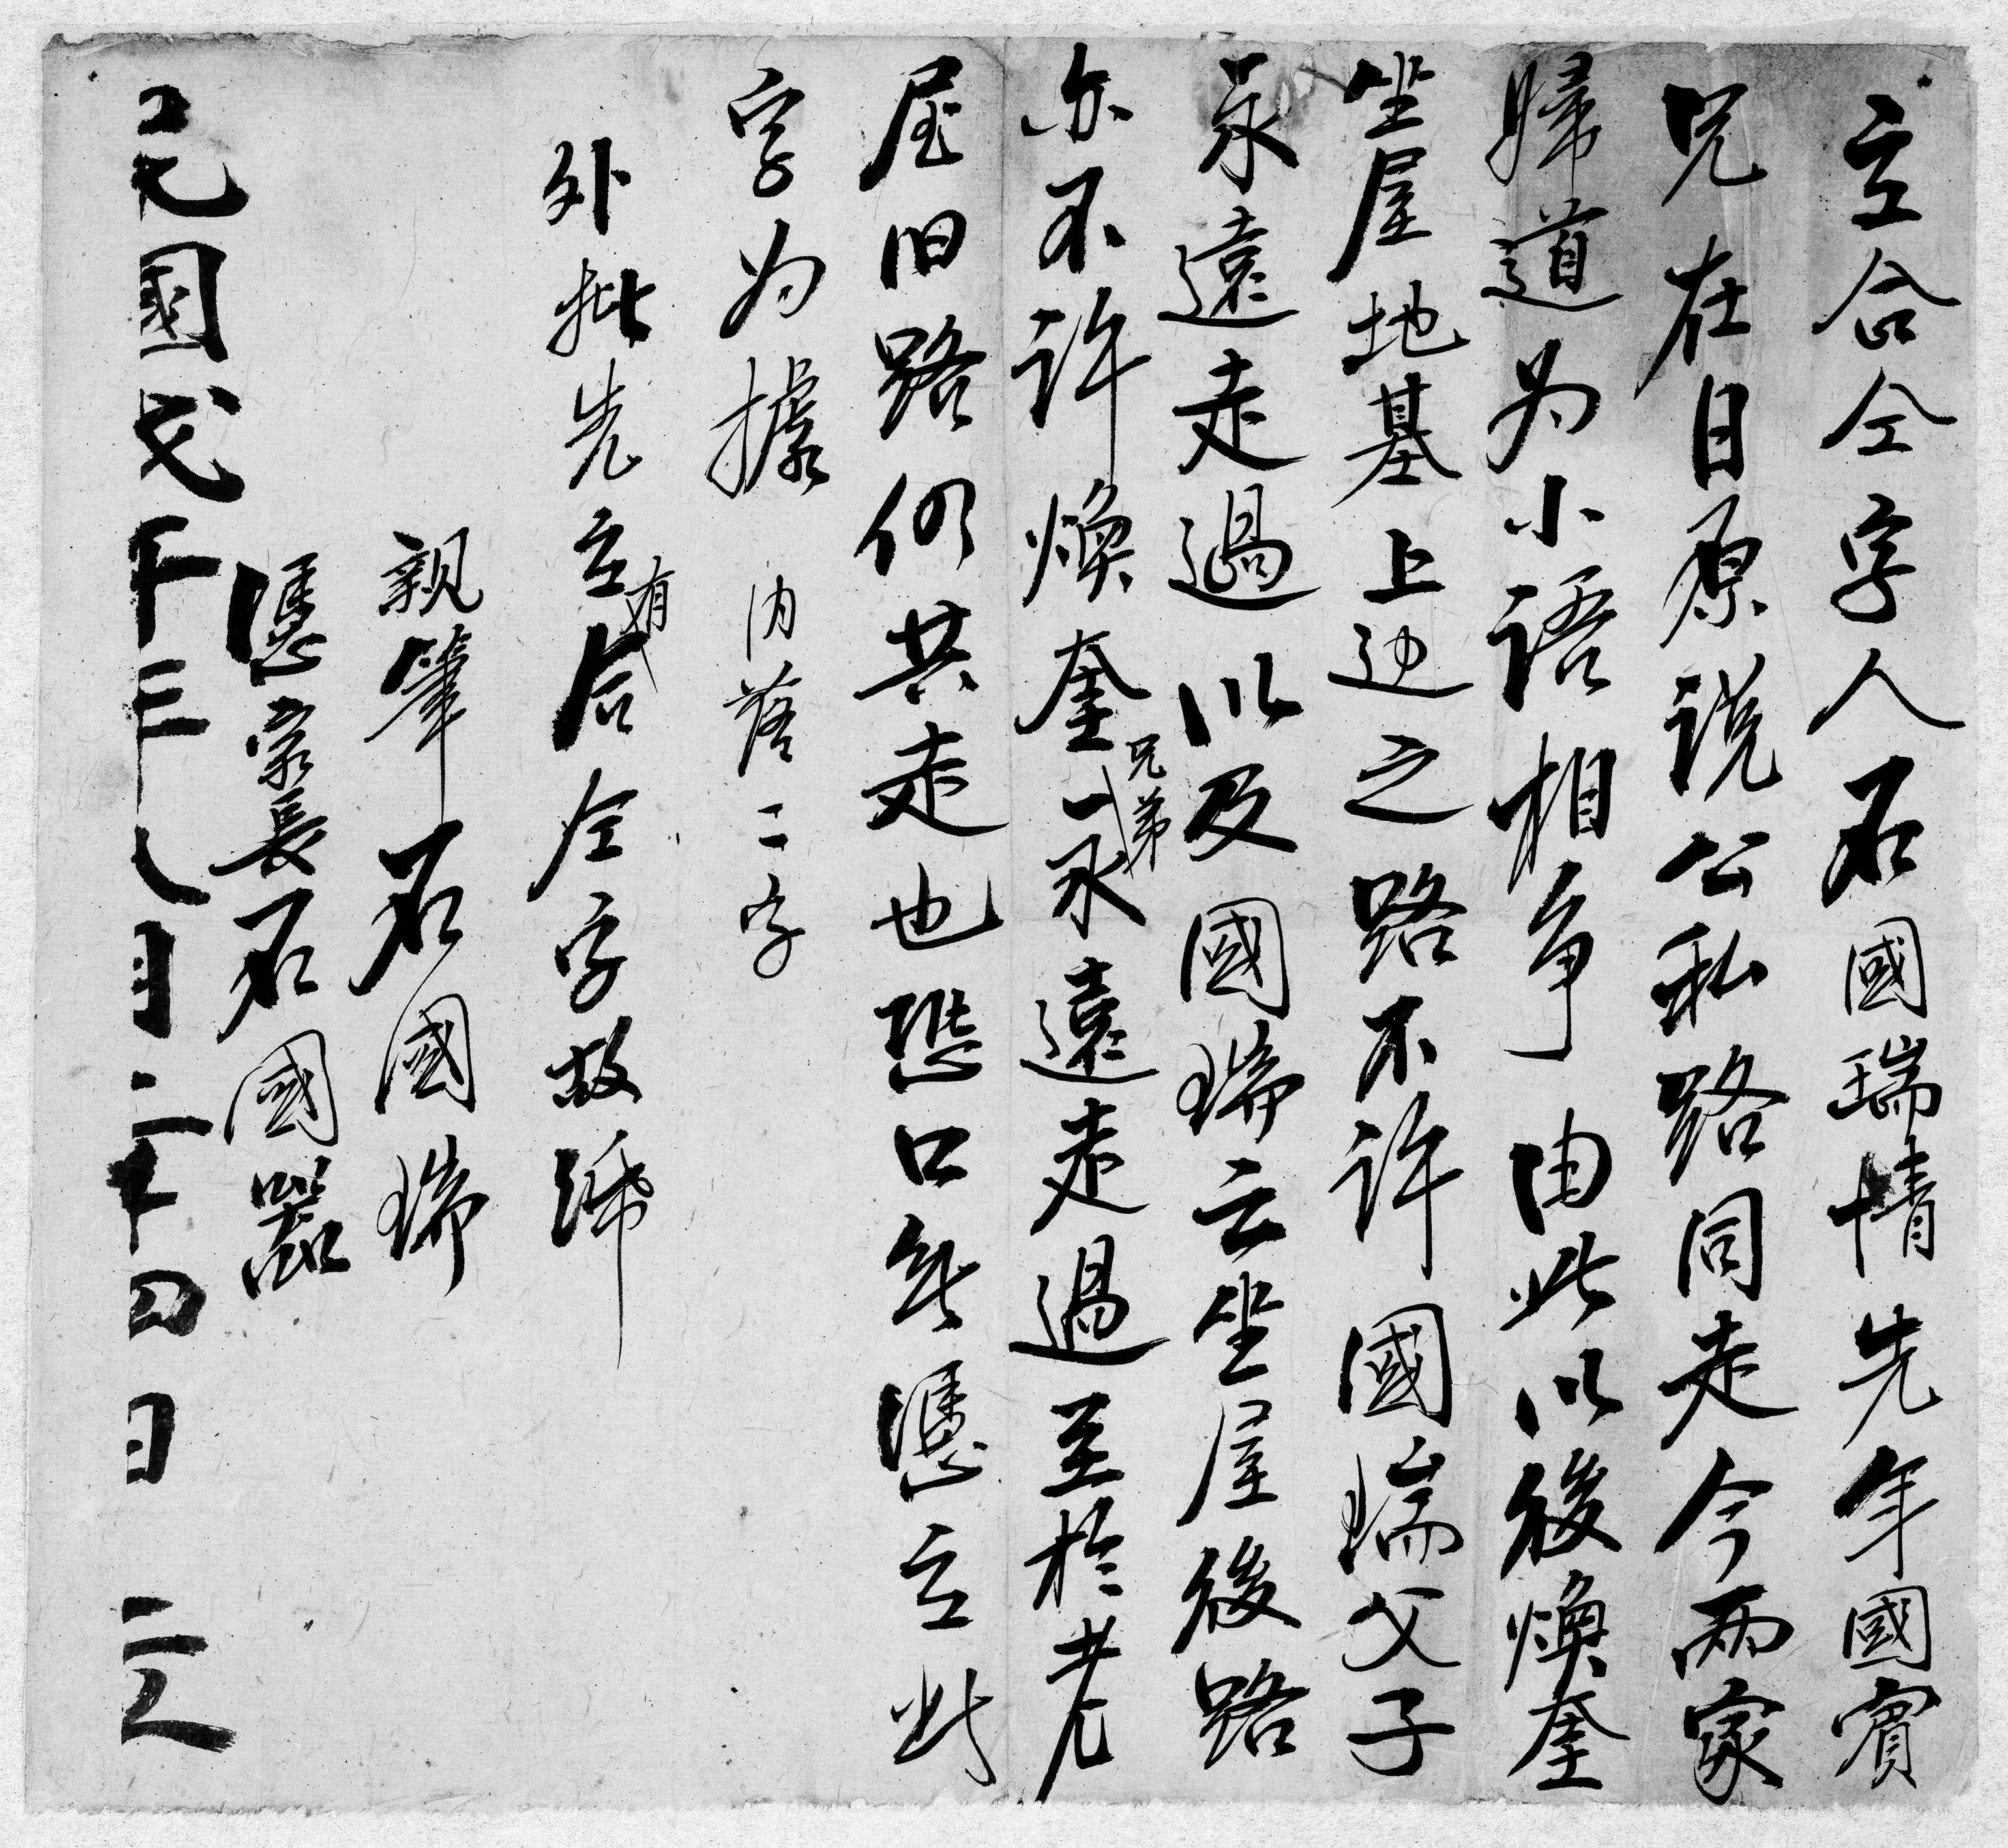 立合仝字人石國瑞情先年國賓
兄在日原説公私路同走今兩家
婦道为小语相争由此以後煥奎
坐屋地基上边之路不许國瑞父子
永遠走過以及國瑞云坐屋後路
亦不許煥奎兄弟永遠走過至於老
屋旧路仍共走也恐口無憑立此
字为據 内落二字
外批先立有合仝字故𥿄
親筆石國瑞
憑家長石國器
民國戊年三八月二十四日 立